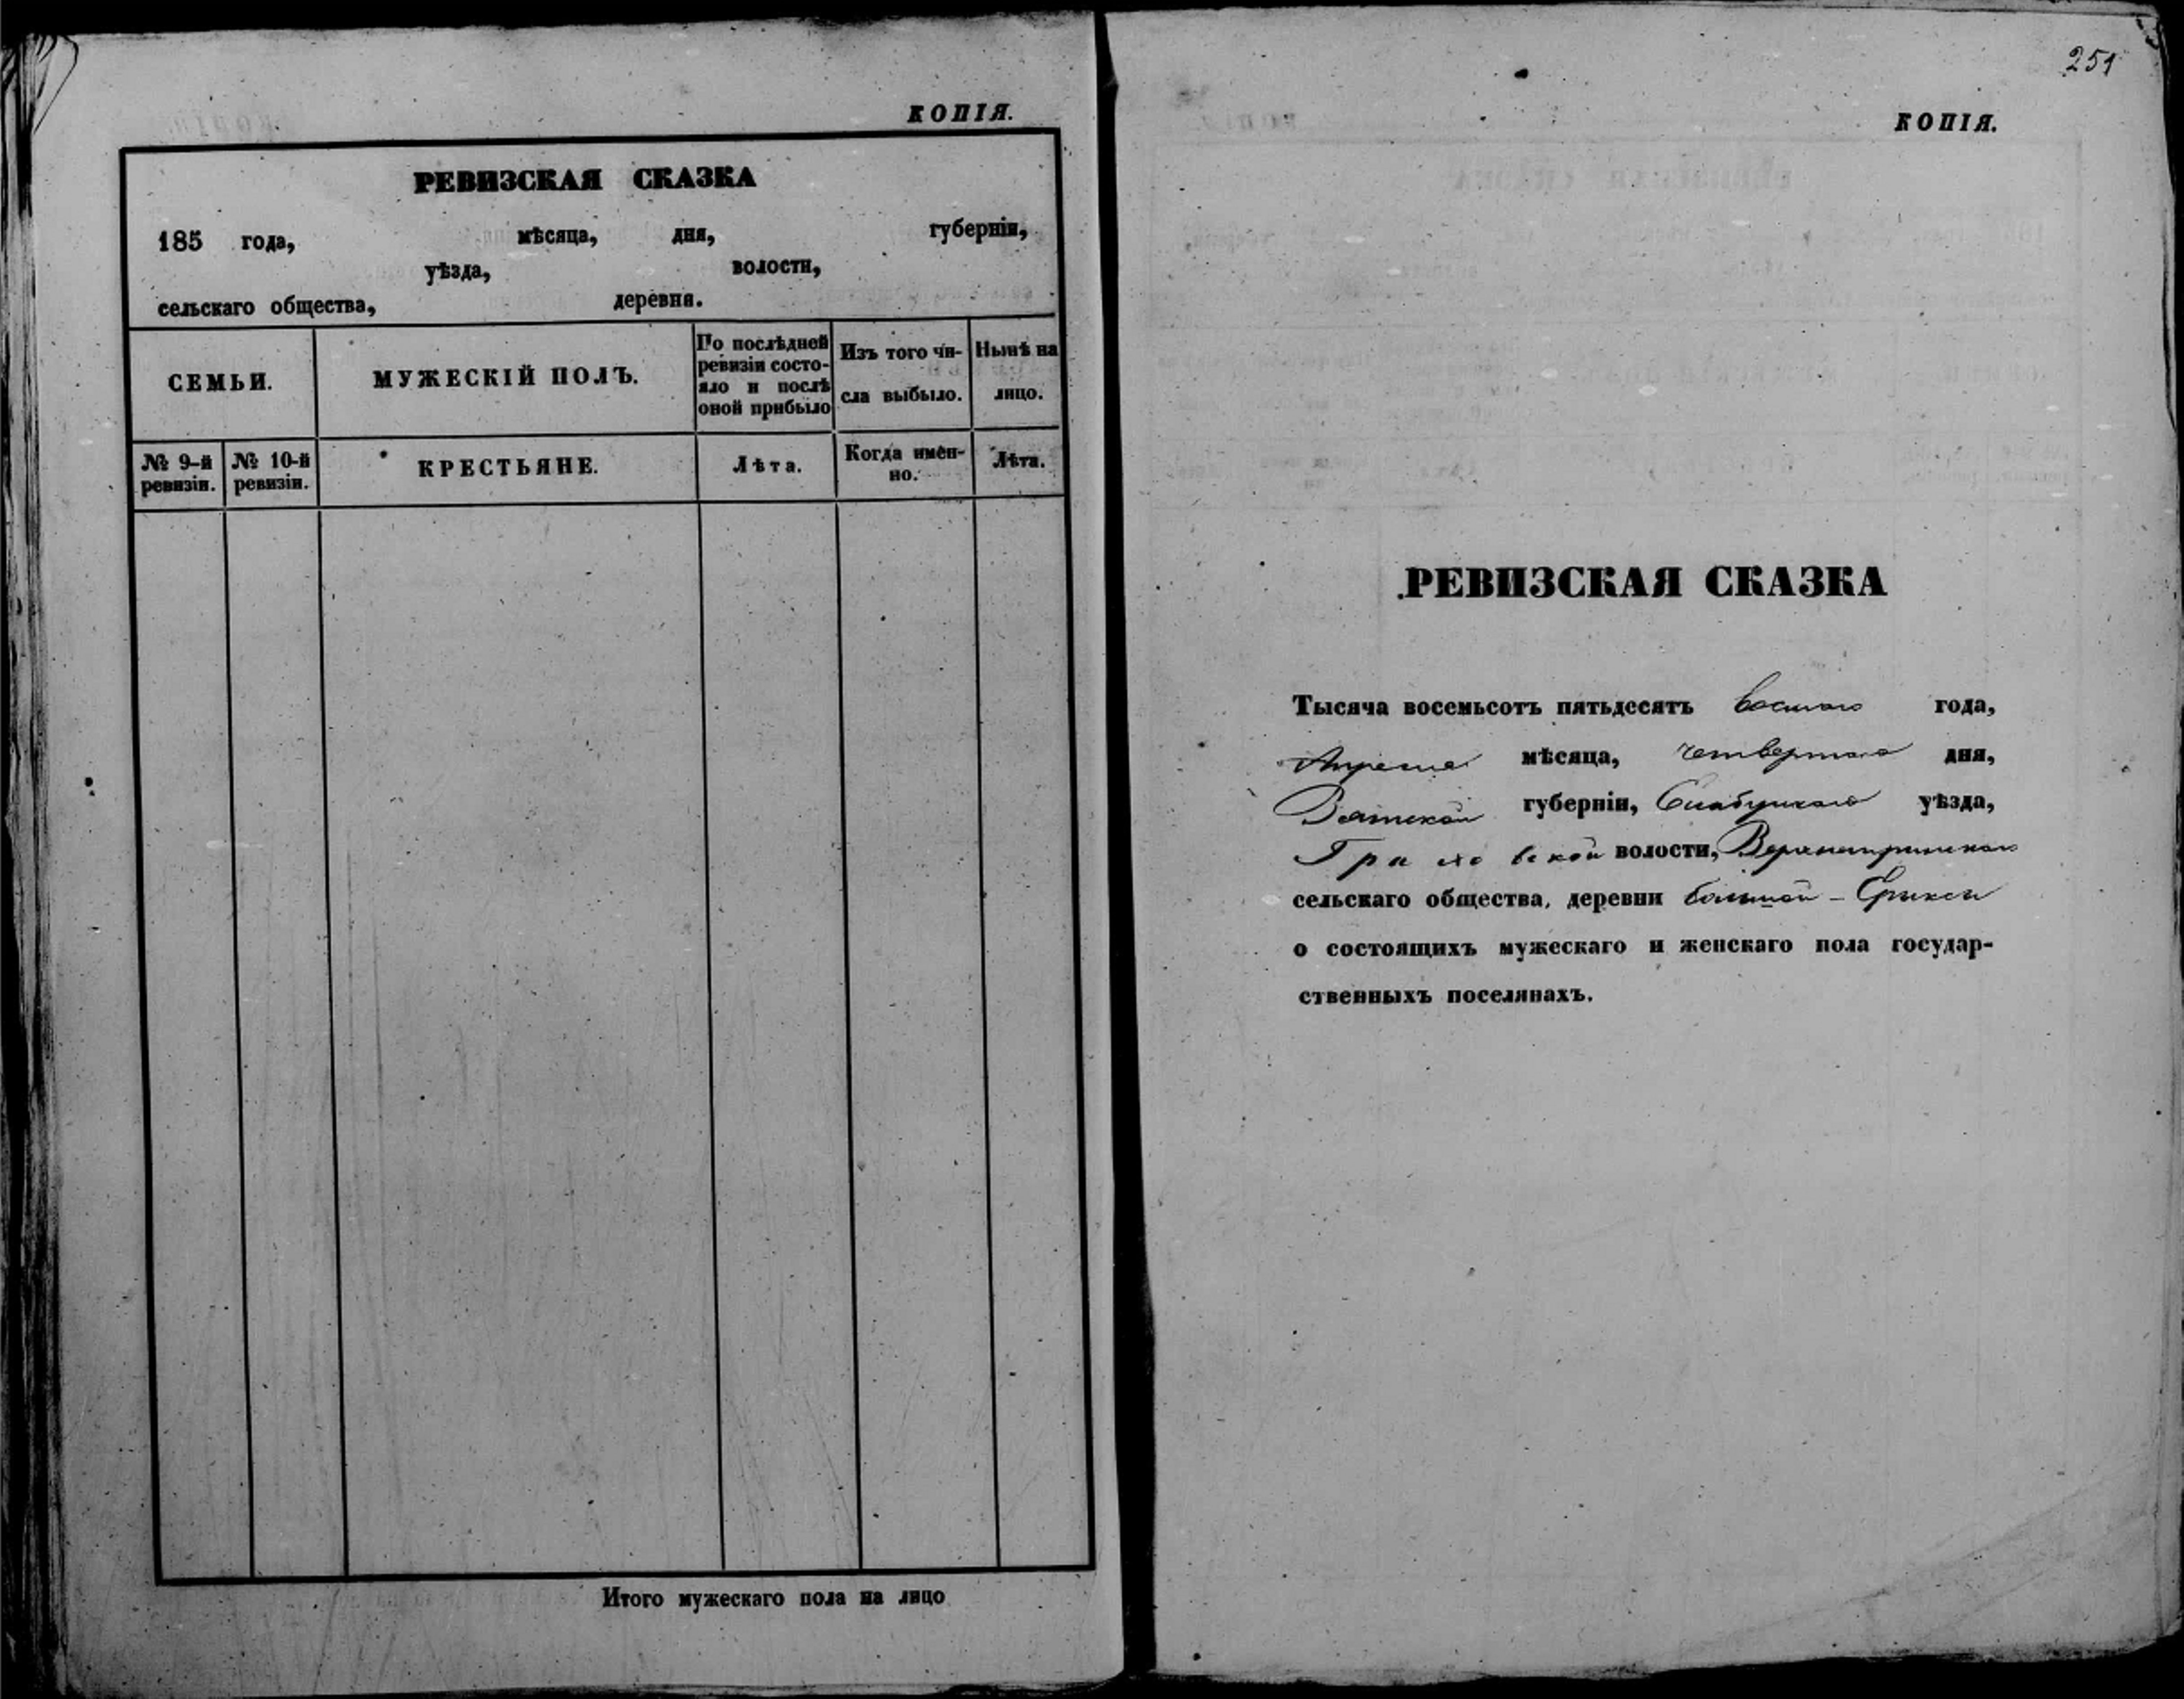 КОПІЯ.
РЕВИЗСКАЯ СКАЗКА
185 года, мѣсяца, дня, губерніи,
уѣзда, волости,
сельскаго общества, деревня.
СЕМЬИ.
МУЖЕСКІЙ ПОЛЪ.
По послѣдней
ревизіи состо-
яло и послѣ
оной прибыло
Изъ того чи-
сла выбыло.
Нынѣ на
лицо.
№ 9-й
ревизіи.
№ 10-й
ревизіи.
КРЕСТЬЯНЕ.
Лѣта.
Когда имен-
но.
Лѣта.
Итого мужескаго пола на лицо
251
КОПІЯ.
РЕВИЗСКАЯ СКАЗКА
Тысяча восемьсотъ пятьдесятъ восьмого года,
Апреля мѣсяца, четвертого дня,
Вятской губерніи, Елабужскаго уѣзда,
Граховской волости,
сельскаго общества, деревни большой - Ерыксы
о состоящихъ мужескаго и женскаго пола государ-
ственныхъ поселянахъ.